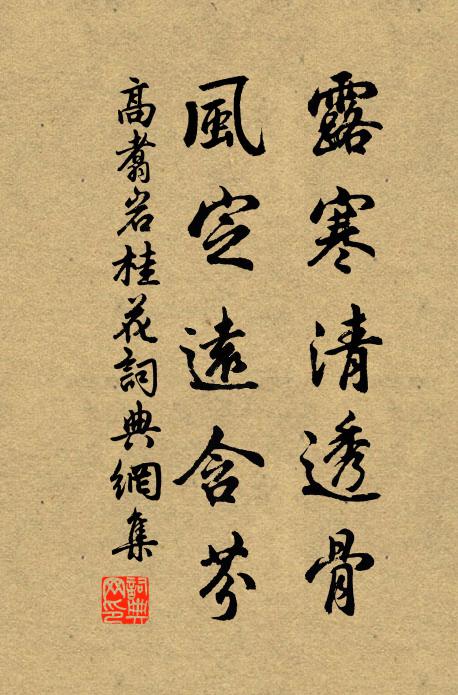 露寒清透骨
風定遠含芬
高翥岩桂花詞典網集
詞典
网印